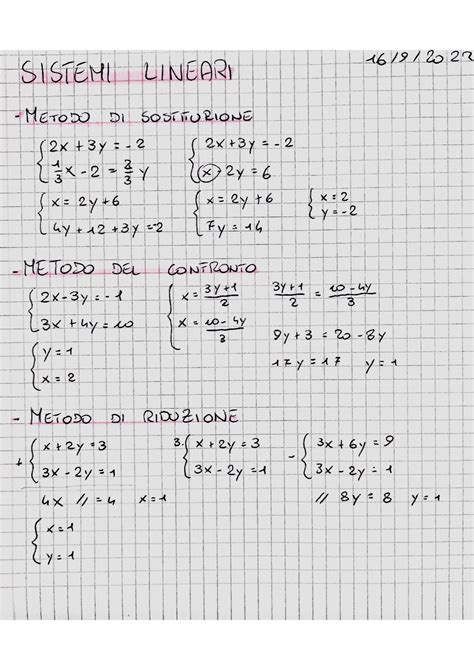 SISTEMI LINEARI 16/9/2022
- METODO DI SOSTITUZIONE
{2x + 3y = -2 {2x + 3y = -2
{1/3 x - 2 = 2/3 y {x - 2y = 6
{x = 2y + 6 {x = 2y + 6 {x = 2
{4y + 12 + 3y = -2 {7y = 14 {y = -2
- METODO DEL CONFRONTO
{2x - 3y = -1 {x = 3y+1/2 3y+1/2 = 10-4y/3
{3x + 4y = 10 {x = 10-4y/3 9y + 3 = 20 - 8y
{y = 1 17y = 17 y = 1
{x = 2
- METODO DI RIDUZIONE
+ {x + 2y = 3 3. {x + 2y = 3 - {3x + 6y = 9
{3x - 2y = 1 {3x - 2y = 1 {3x - 2y = 1
4x // = 4 x = 1 // 8y = 8 y = 1
{x = 1
{y = 1